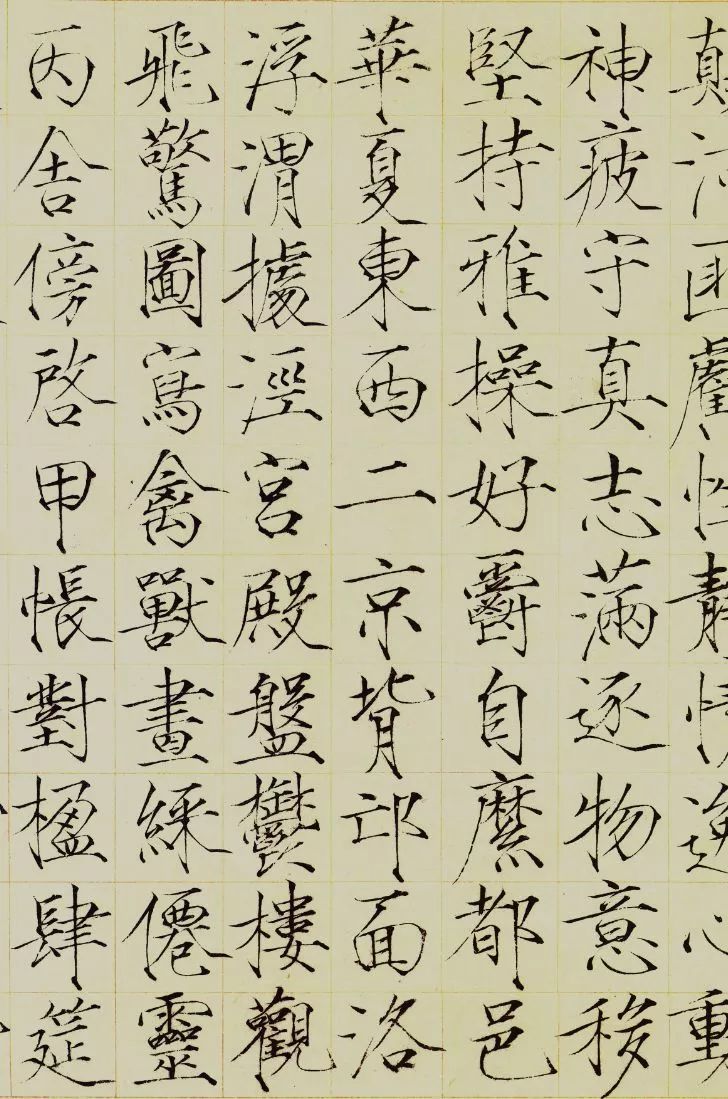 顛沛匪虧性靜情逸心動
神疲守真志滿逐物意移
堅持雅操好爵自縻都邑
華夏東西二京背邙面洛
浮渭據涇宮殿盤鬱樓觀
飛驚圖寫禽獸畫綵僊靈
丙舍傍啓甲帳對楹肆筵